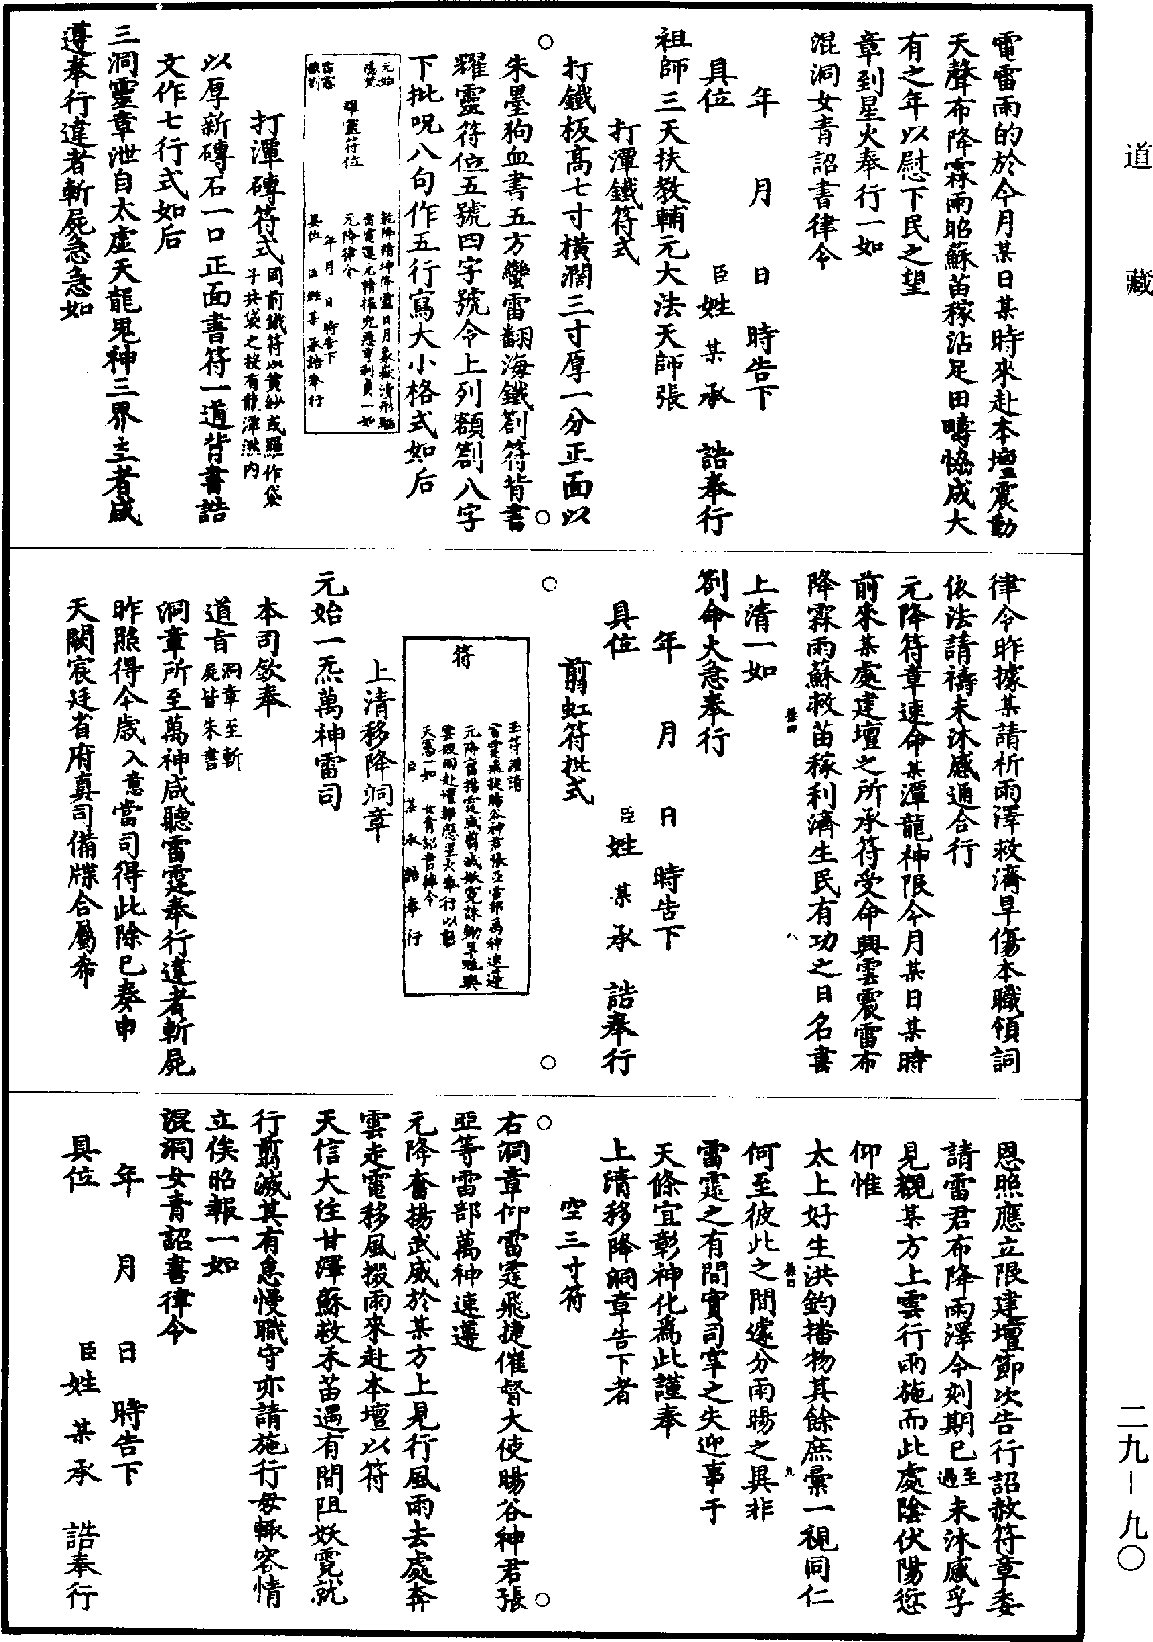 道藏
二九－九〇
雷雷雨的於今月某日某時來赴本壇震動
天聲布降霖雨昭蘇苗稼沾足田疇恊成大
有之年以慰下民之望
章到星火奉行一如
混洞女青詔書律令
年　月　日　時告下
具位　臣姓某承　誥奉行
祖師三天扶教輔元大法天師張
打潭鐵符式
打鐵板高七寸橫濶三寸厚一分正面以
朱墨狗血書五方蠻雷翻海鐵劄符背書
耀靈符位五號四字號令上列額劄八字
下批呪八句作五行寫大小格式如后
元始
耀靈符位
乾降精坤降靈日月象嶽瀆形驅
雷電運元情攝兇惡亨利貞一如
元降律令
年　月　日　時告下
具位　臣姓某承誥奉行
打潭磚符式
國前鐵符以黄紗或羅作袋
子袋之投有龍潭湫内
以厚新磚石一口正面書符一道背書誥
文作七行式如后
三洞靈章泄自太虛天龍鬼神三界主者咸
遵奉行違者斬屍急急如
律令昨據某請祈雨澤救濟旱傷本職領詞
依法請禱未沐感通合行
元降符章速命某潭龍神限今月某日某時
前來某處建壇之所承符受命興雲震雷布
降霖雨蘇救苗稼利濟生民有功之日名書
上清一如
劄命火急奉行
年　月　日　時告下
具位　臣姓某承　誥奉行
剪虹符批式
符
玉符濯請
雷霆飛捷暘谷神君張亞雷部萬神速遵
元降奮揚霆威剪滅妖霓誅斬旱魃興
雲致雨赴壇雜應星火奉行以聽
天憲一如　女青詔書律令
臣某承誥奉行
上清移降洞章
元始一炁萬神雷司
本司欽奉
道旨洞章至斬
屍皆朱書
洞章所至萬神咸聽雷霆奉行違者斬屍
昨照得今歲入意當司得此除已奏申
天闕宸廷省府真司備牒合屬希
恩照應立限建壇節次告行詔赦符章委
請雷君布降雨澤今刻期已至過未沐感孚
見觀某方上雲行雨施而此處陰伏陽愆
仰惟
太上好生洪鈞播物其餘庶彙一視同仁
何至彼此之間遽分雨暘之異非
雷霆之有間實司宰之失迎事于
天條宜彰神化爲此謹奉
上清移降洞章告下者
空三寸符
右洞章仰雷霆飛捷催督大使暘谷神君張
亞等雷部萬神速遵
元降奮揚武威於某方上見行風雨去處奔
雲走電移風掇雨來赴本壇以符
天信大注甘澤蘇救禾苗遇有間阻妖霓就
行翦滅其有怠慢職守亦請施行毋輒容情
立俟昭報一如
混洞女青詔書律令
年　月　日　時告下
具位　臣姓某承　誥奉行